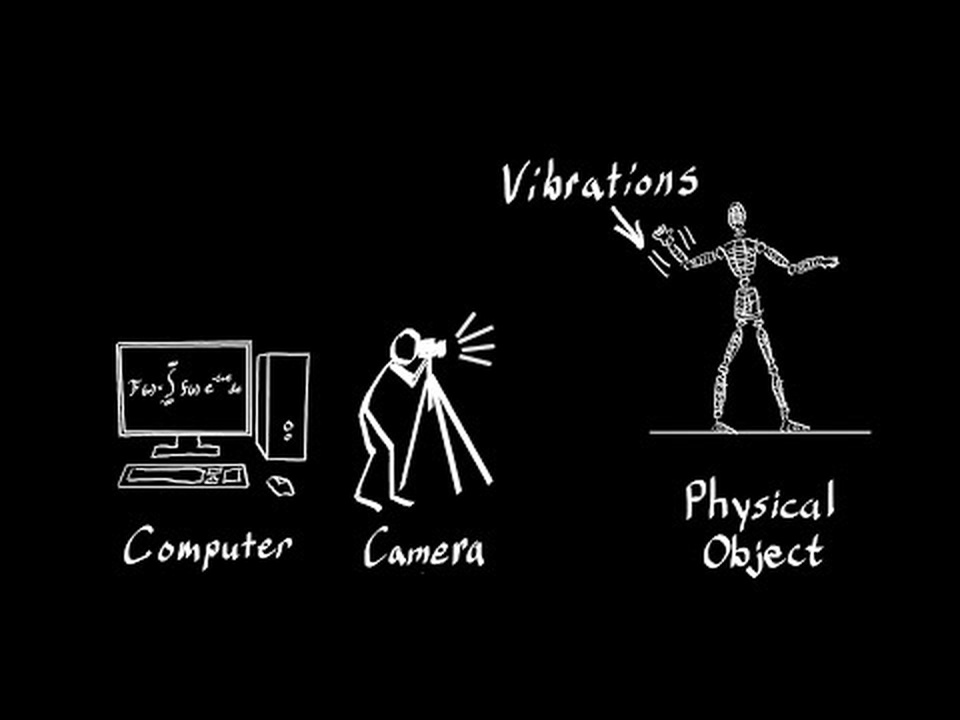 Vibrations
Computer
Camera
Physical
Object